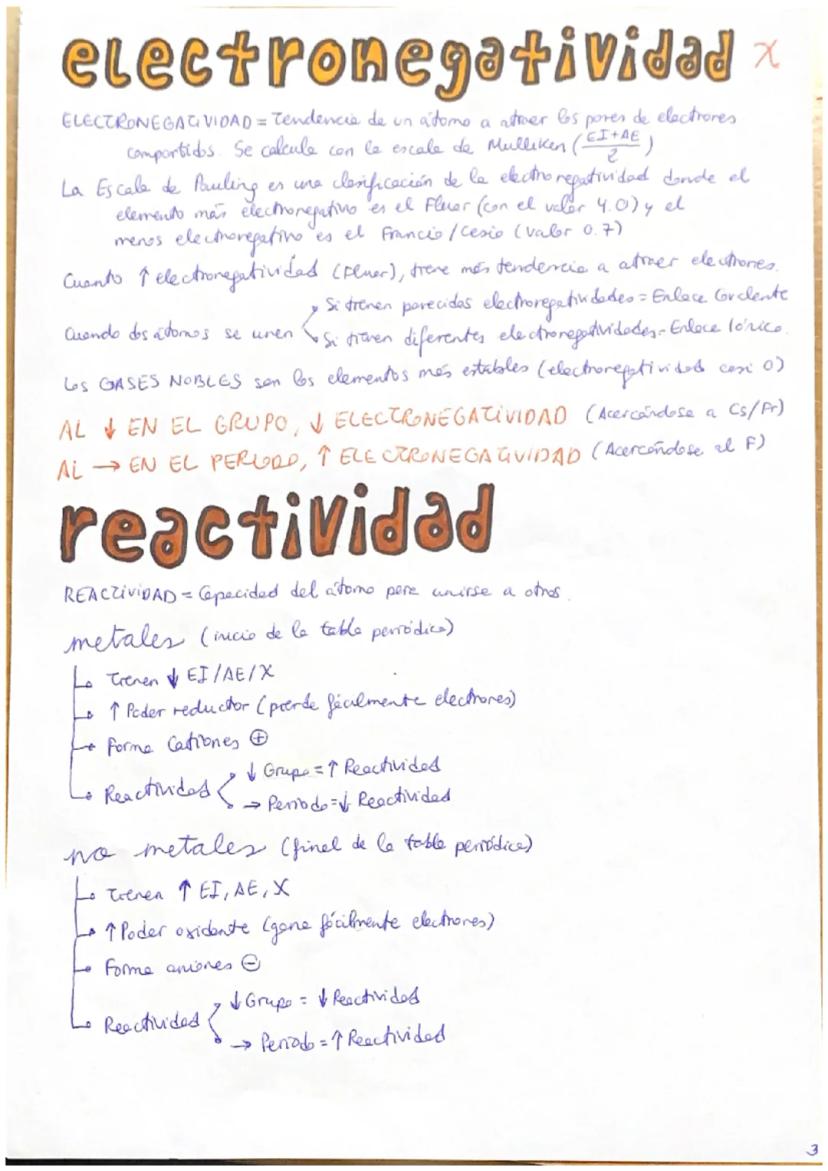 electronegatividad X
ELECTRONEGATIVIDAD = Tendencia de un átomo a atraer los pares de electrones
compartidos. Se calcula con la escala de Mulliken (EI+AE/2)
La Escala de Pauling es una clasificación de la electronegatividad donde el
elemento más electronegativo es el Fluor (con el valor 4.0) y el
menos electronegativo es el Francio/Cesio (valor 0.7)
Cuanto ↑ electronegatividad (Fluor), tiene más tendencia a atraer electrones.
Si tienen parecidas electronegatividades = Enlace Covalente
Cuando dos átomos se unen
Si tienen diferentes electronegatividades = Enlace Iónico.
Los GASES NOBLES son los elementos más estables (electronegatividad casi 0)
AL ↓ EN EL GRUPO, ↓ ELECTRONEGATIVIDAD (Acercándose a Cs/Fr)
AL → EN EL PERIODO, ↑ ELECTRONEGATIVIDAD (Acercándose al F)
reactividad
REACTIVIDAD = Capacidad del átomo para unirse a otros.
metales (inicio de la tabla periódica)
Tienen ↓ EI/AE/X
↑ Poder reductor (pierde fácilmente electrones)
Forma Cationes ⊕
↓ Grupo = ↑ Reactividad
Reactividad
→ Periodo = ↓ Reactividad
no metales (final de la tabla periódica)
Tienen ↑ EI, AE, X
↑ Poder oxidante (gana fácilmente electrones)
Forma aniones ⊖
↓ Grupo = ↓ Reactividad
Reactividad
→ Periodo = ↑ Reactividad
3